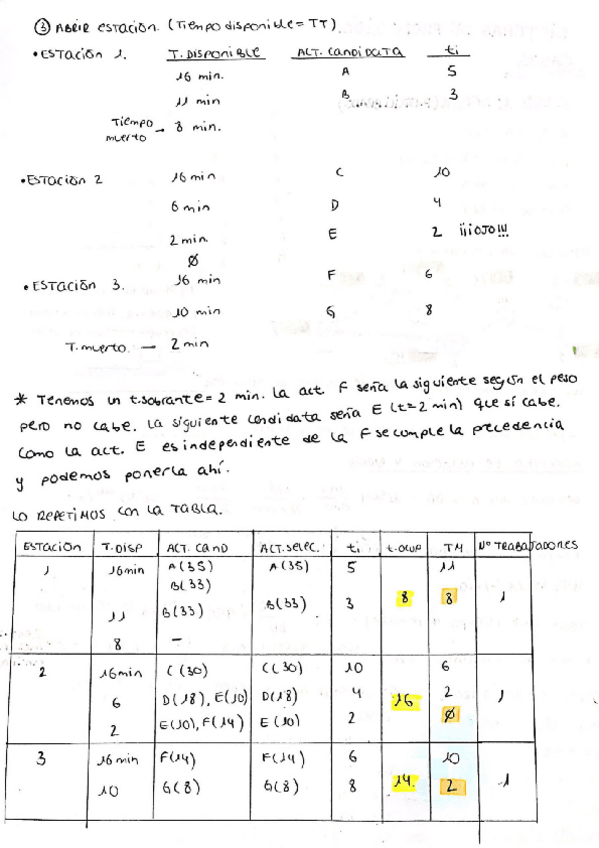 ③ ABRIR ESTACIÓN. (Tiempo disponible = TT)
• ESTACIÓN 1. T. DISPONIBLE ACT. CANDIDATA ti
16 min. A 5
11 min B 3
Tiempo muerto → 8 min.
• ESTACIÓN 2 16 min C 10
6 min D 4
2 min. E 2 ¡¡¡OJO!!!
Ø
• ESTACIÓN 3. 16 min F 6
10 min G 8
T. muerto. — 2 min
* Tenemos un t.sobrante = 2 min. La act. F sería la siguiente según el peso
pero no cabe. La siguiente candidata sería E (t=2 min) que sí cabe.
Como la act. E es independiente de la F se cumple la precedencia
y podemos ponerla ahí.
LO REPETIMOS CON LA TABLA.
ESTACIÓN T.DISP ACT. CAND ACT.SELEC. ti t.OCUP TM Nº TRABAJADORES
1 16min A(35) A(35) 5 11
B(33)
11 B(33) B(33) 3 8 8 1
8 –
2 16min C(30) C(30) 10 6
6 D(18), E(10) D(18) 4 16 2 1
2 E(10), F(14) E(10) 2 Ø
3 16min F(14) F(14) 6 10
10 G(8) G(8) 8 14. 2 1